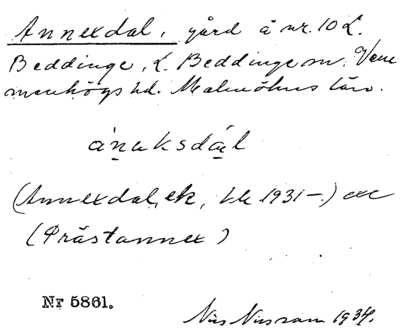 Annexdal, gård å nr. 10 L.
Beddinge, L. Beddinge sn. Vem
menhögs hd. Malmöhus län.
ánaksdál
(Annexdal, ek, 1931–)
(Prästannex)
Nr 5861.
Nils Nilsson 1934.